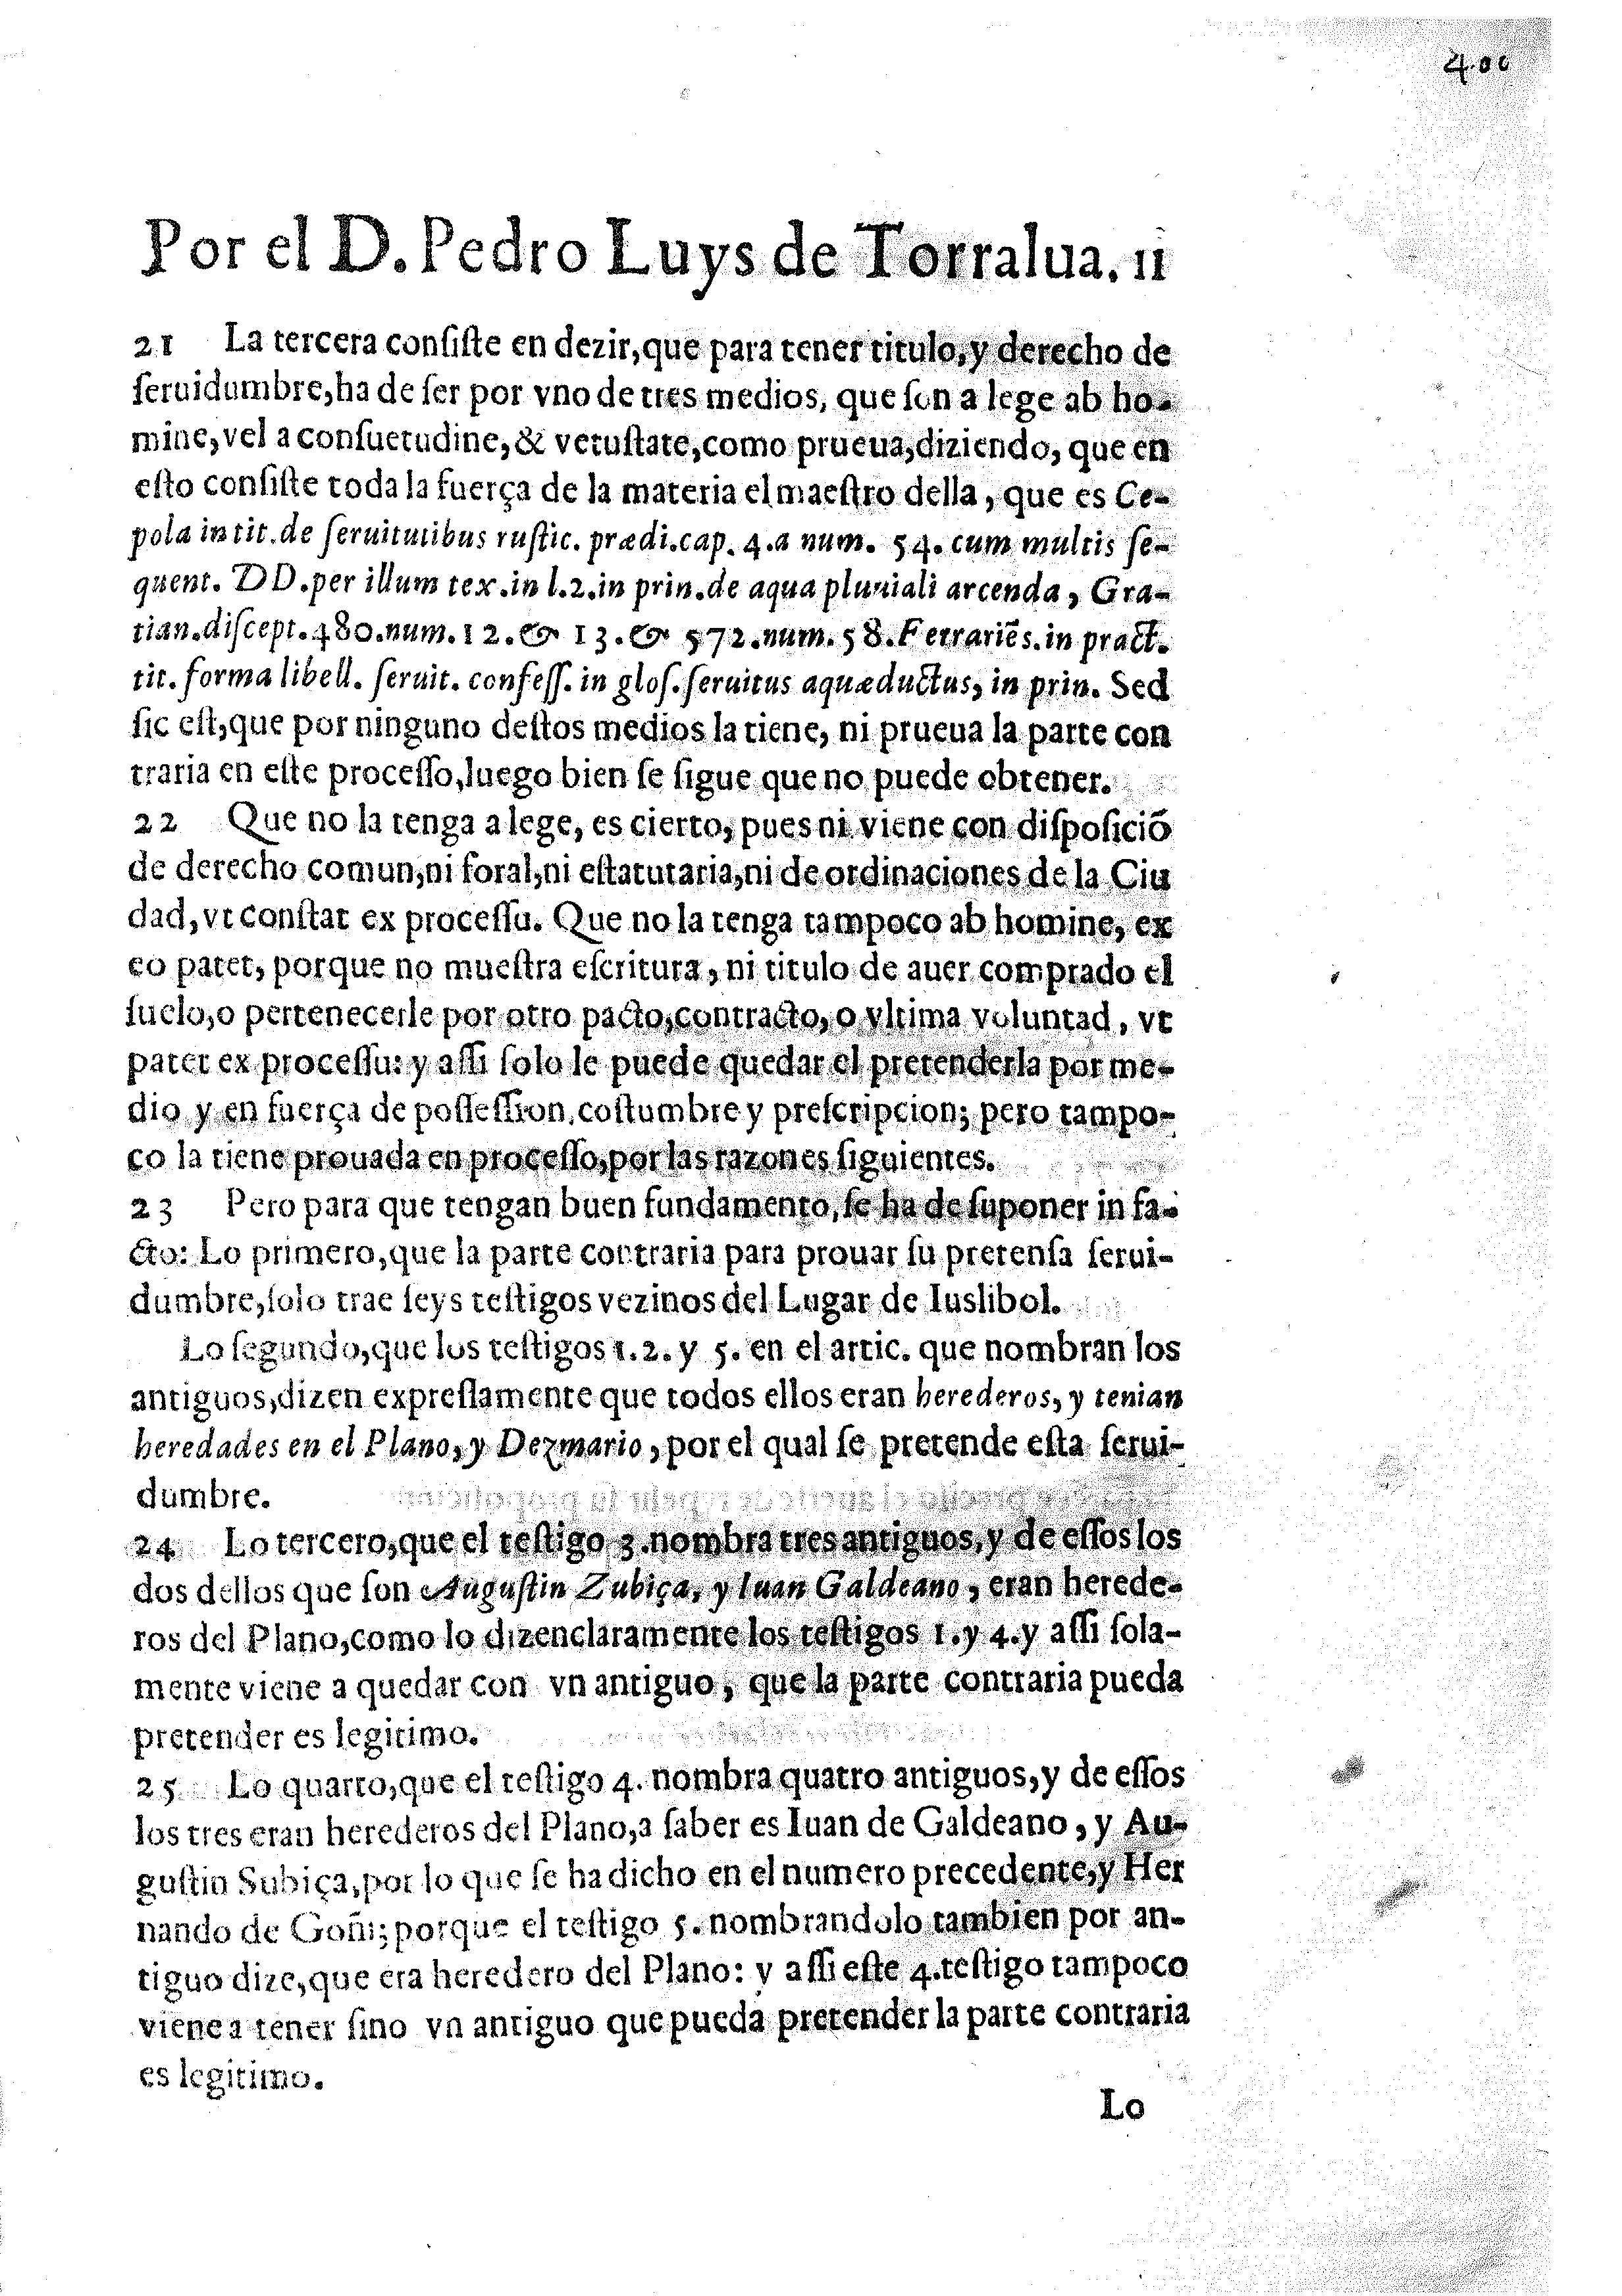 4.00
Por el D. Pedro Luys de Torralua. 11
21 La tercera consiste en dezir, que para tener titulo, y derecho de
ſeruidumbre, ha de ſer por vno de tres medios, que ſon a lege ab ho-
mine, vel a conſuetudine, & vetuſtate, como prueua, diziendo, que en
eſto conſiſte toda la fuerça de la materia el maeſtro della, que es Ce-
pola in tit. de ſeruitutibus ruſtic. prædi. cap. 4. a num. 54. cum multis ſe-
quent. DD. per illum tex. in l. 2. in prin. de aqua pluuiali arcenda, Gra-
tian. diſcept. 480. num. 12. & 13. & 572. num. 58. Ferrariēs. in pract.
tit. forma libell. ſeruit. confeſſ. in gloſ. ſeruitus aquæductus, in prin. Sed
ſic eſt, que por ninguno deſtos medios la tiene, ni prueua la parte con
traria en eſte proceſſo, luego bien ſe ſigue que no puede obtener.
22 Que no la tenga a lege, es cierto, pues ni viene con diſpoſiciō
de derecho comun, ni foral, ni eſtatutaria, ni de ordinaciones de la Ciu
dad, vt conſtat ex proceſſu. Que no la tenga tampoco ab homine, ex
eo patet, porque no mueſtra eſcritura, ni titulo de auer comprado el
ſuelo, o pertenecerle por otro pacto, contracto, o vltima voluntad, vt
patet ex proceſſu: y aſſi ſolo le puede quedar el pretenderla por me-
dio y en fuerça de poſſeſſion, coſtumbre y preſcripcion; pero tampo-
co la tiene prouada en proceſſo, por las razones ſiguientes.
23 Pero para que tengan buen fundamento, ſe ha de ſuponer in fa-
cto: Lo primero, que la parte contraria para prouar ſu pretenſa ſerui-
dumbre, ſolo trae ſeys teſtigos vezinos del Lugar de Iuslibol.
Lo ſegundo, que los teſtigos 1. 2. y 5. en el artic. que nombran los
antiguos, dizen expreſſamente que todos ellos eran herederos, y tenian
heredades en el Plano, y Dezmario, por el qual ſe pretende eſta ſerui-
dumbre.
24 Lo tercero, que el teſtigo 3. nombra tres antiguos, y de eſſos los
dos dellos que ſon Auguſtin Zubiça, y Iuan Galdeano, eran herede-
ros del Plano, como lo dizen claramente los teſtigos 1. y 4. y aſſi ſola-
mente viene a quedar con vn antiguo, que la parte contraria pueda
pretender es legitimo.
25 Lo quarto, que el teſtigo 4. nombra quatro antiguos, y de eſſos
los tres eran herederos del Plano, a ſaber es Iuan de Galdeano, y Au-
guſtin Subiça, por lo que ſe ha dicho en el numero precedente, y Her
nando de Goñi; porque el teſtigo 5. nombrandolo tambien por an-
tiguo dize, que era heredero del Plano: y aſſi eſte 4. teſtigo tampoco
viene a tener ſino vn antiguo que pueda pretender la parte contraria
es legitimo.
Lo